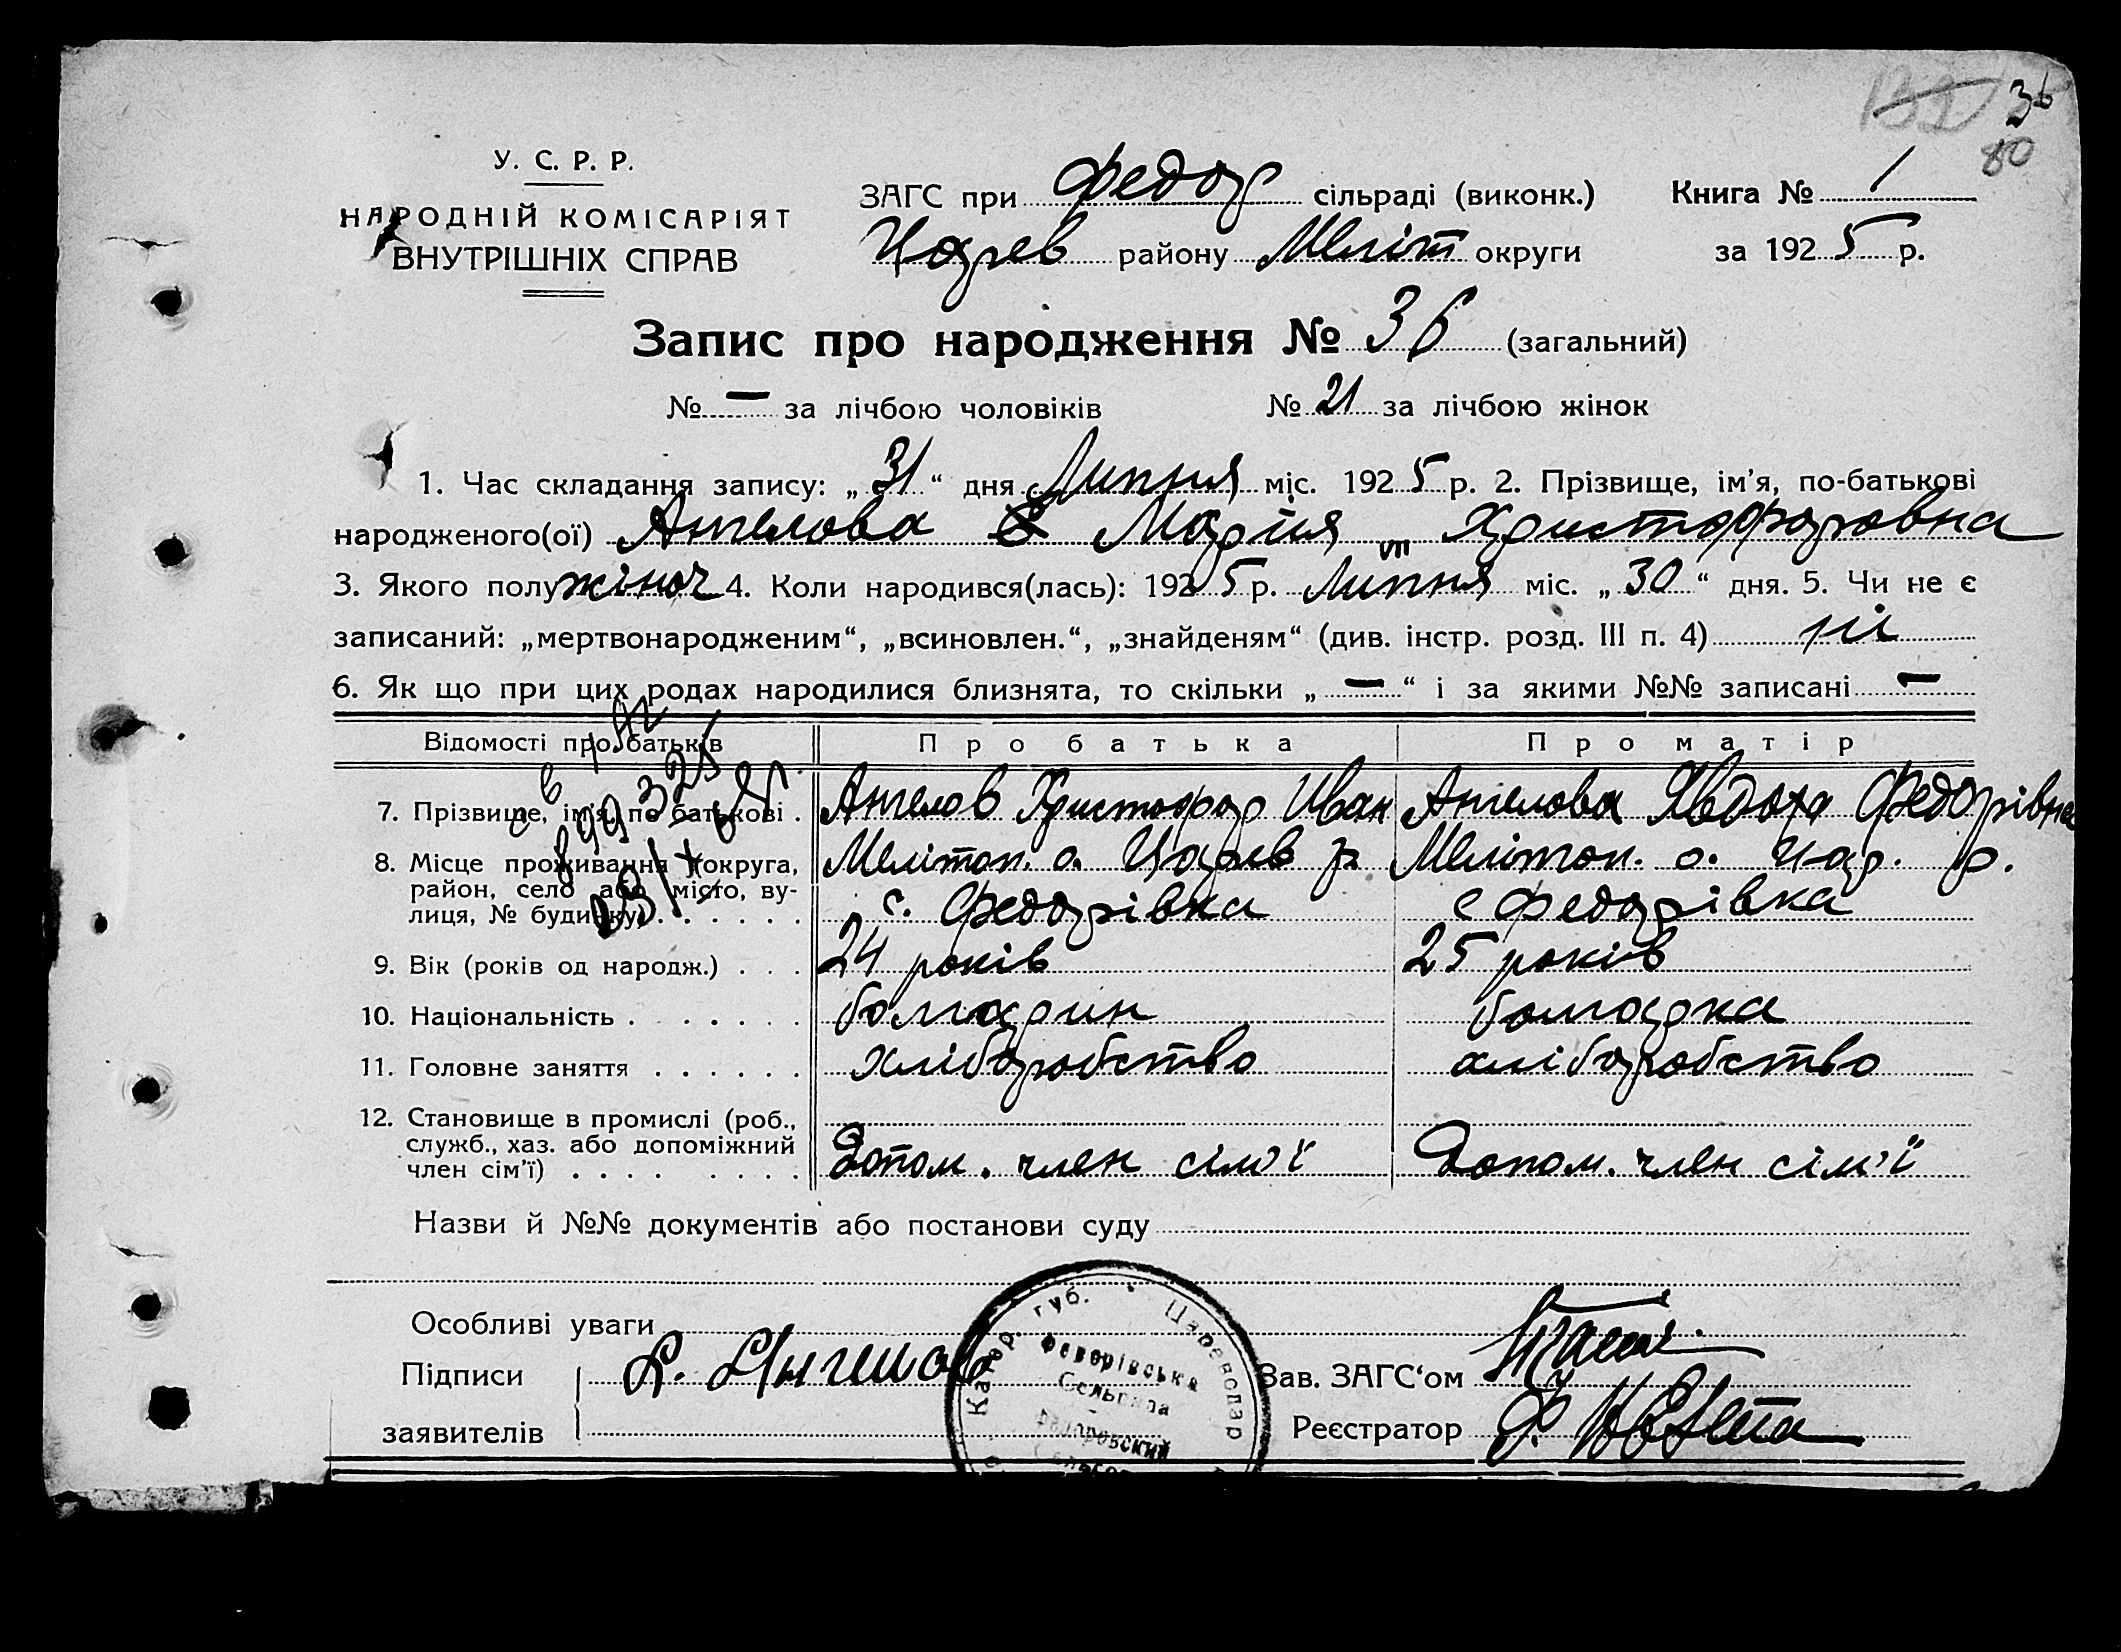 36
80
У. С. Р. Р.
НАРОДНІЙ КОМІСАРІЯТ
ВНУТРІШНІХ СПРАВ
ЗАГС при Федор сільраді (виконк.) Книга № 1
Царев району Меліт округи за 1925 р.
Запис про народження № 36 (загальний)
№ — за лічбою чоловіків № 21 за лічбою жінок
1. Час складання запису: „31“ дня Липня міс. 1925 р. 2. Прізвище, ім'я, по-батькові
народженого(ої) Ангелова Марія Христофоровна
3. Якого полу жіноч 4. Коли народився(лась): 1925 р. Липня VII міс. „30“ дня. 5. Чи не є
записаний: „мертвонародженим“, „всиновлен.“, „знайденям“ (див. інстр. розд. III п. 4) ні
6. Як що при цих родах народилися близнята, то скільки „—“ і за якими №№ записані —
Відомості про батьків Про батька Про матір
7. Прізвище, ім'я, по батькові . Ангелов Христофор Иван Ангелова Явдоха Федорівна
8. Місце проживання (округа, район, село або місто, вулиця, № будинку) . . . . . . Мелітоп. о. Царев р. Мелітоп. о. Цар. р.
с. Федорівка с Федорівка
9. Вік (років од народж.) . . . 24 років 25 років
10. Національність . . . . . . . болгарин болгарка
11. Головне заняття . . . . . . хліборобство хліборобство
12. Становище в промислі (роб., служб., хаз. або допоміжний член сім'ї) . . . . . . . . Допом. член сім'ї Допом. член сім'ї
Назви й №№ документів або постанови суду
Особливі уваги
Підписи заявителів
Зав. ЗАГС‘ом
Реєстратор
Катер. губ. • Цареводар
Федорівська
Сельрада
Федоровский